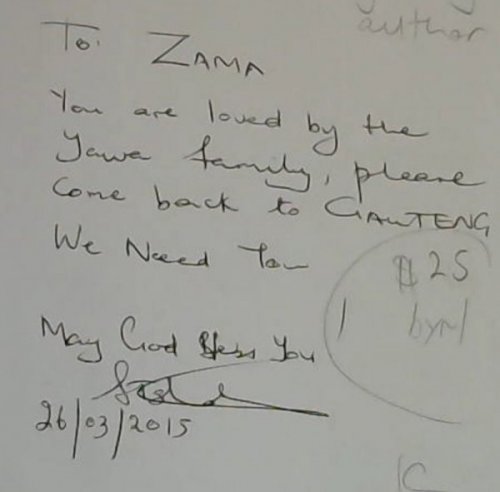 author
To: ZAMA
You are loved by the
Yawa family, please
Come back to GAUTENG
We Need You
$25
May God Bless You
26/03/2015